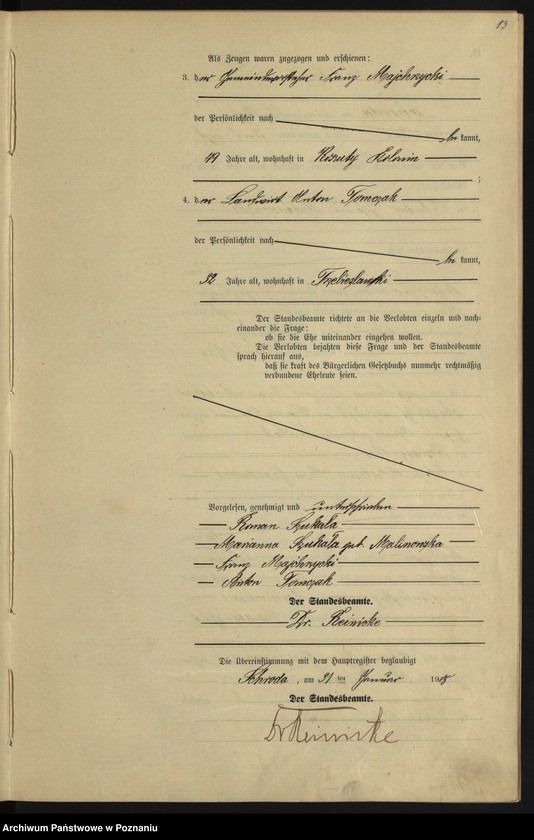 13
Als Zeugen waren zugezogen und erschienen:
3. der Gemeindevorsteher Franz Majchrzycki
der Persönlichkeit nach
be kannt,
49 Jahre alt, wohnhaft in
;
4. der Landwirt Anton Tomczak
der Persönlichkeit nach
be kannt,
52 Jahre alt, wohnhaft in
Der Standesbeamte richtete an die Verlobten einzeln und nach-
einander die Frage:
ob sie die Ehe miteinander eingehen wollen.
Die Verlobten bejahten diese Frage und der Standesbeamte
sprach hierauf aus,
daß sie kraft des Bürgerlichen Gesetzbuchs nunmehr rechtmäßig
verbundene Eheleute seien.
Vorgelesen, genehmigt und unterschrieben
Roman Szukała
Marianna Szukała geb. Malinowska
Franz Majchrzycki
Anton Tomczak
Der Standesbeamte.
Dr. Reinicke
Die Übereinstimmung mit dem Hauptregister beglaubigt
Schroda, am 31 ten Januar 19
Der Standesbeamte.
Dr Reinicke
Archiwum Państwowe w Poznaniu